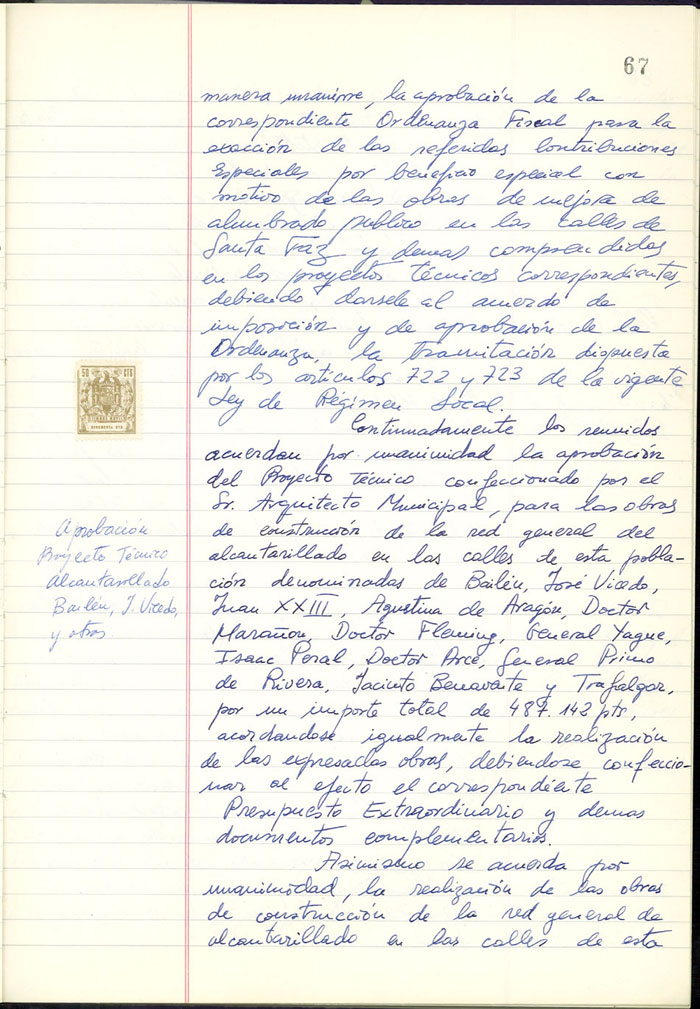 67
manera unanime, la aprobación de la
correspondiente Ordenanza Fiscal para la
exacción de las referidas Contribuciones
Especiales por beneficio especial con
motivo de las obras de mejora de
alumbrado publico en las calles de
Santa Faz y demas comprendidas
en los proyectos técnicos correspondientes,
debiendo darsele al acuerdo de
imposición y de aprobación de la
Ordenanza, la tramitación dispuesta
por los artículos 722 y 723 de la vigente
Ley de Régimen Local.
50 CTS
Continuadamente los reunidos
acuerdan por unanimidad la aprobación
del Proyecto Técnico confeccionado por el
Sr. Arquitecto Municipal, para las obras
de construcción de la red general del
alcantarillado en las calles de esta pobla-
ción denominadas de Bailén, José Vicedo,
Juan XXIII, Agustina de Aragón, Doctor
Marañon, Doctor Fleming, General Yague,
Isaac Peral, Doctor Arce, General Primo
de Rivera, Jacinto Benavente y Trafalgar,
por un importe total de 487.142 pts,
acordandose igualmente la realización
de las expresadas obras, debiendose confeccio-
nar al efecto el correspondiente
Presupuesto Extraordinario y demas
documentos complementarios.
Aprobación
Proyecto Técnico
alcantarillado
Bailén, J. Vicedo,
y otros
Asimismo se acuerda por
unanimidad, la realización de las obras
de construcción de la red general de
alcantarillado en las calles de esta